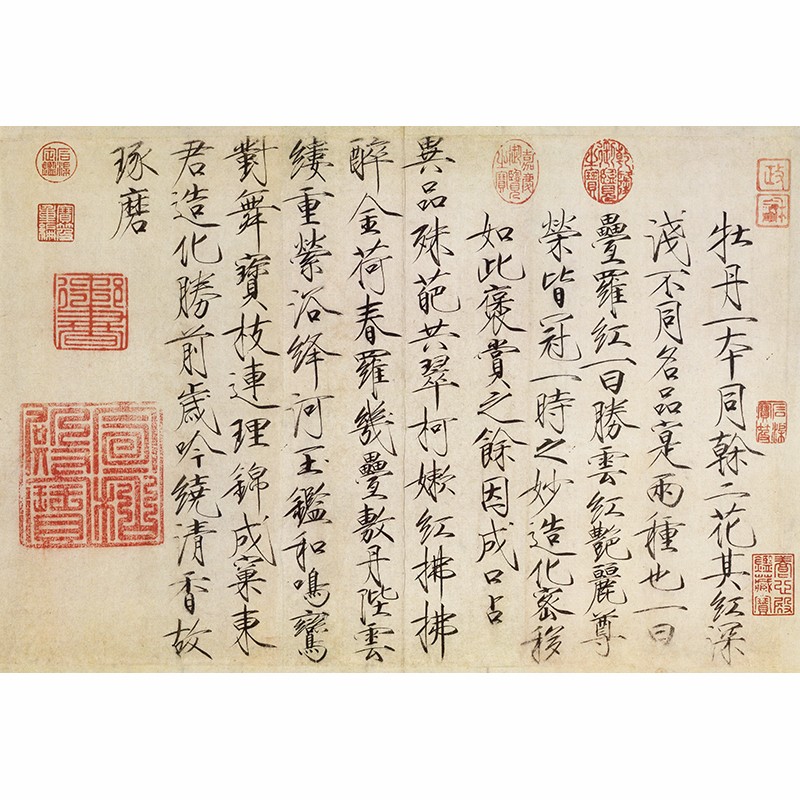 牡丹一本同幹二花其紅深
淺不同名品寔兩種也一曰
疊羅紅一曰勝雲紅艷麗尊
榮皆冠一時之妙造化密移
如此褒賞之餘因成口占
異品殊葩共翠柯嫩紅拂拂
醉金荷春羅幾疊敷丹陛雲
縷重縈浴絳河玉鑑和鳴鸞
對舞寶枝連理錦成窠東
君造化勝前歲吟繞清香故
琢磨
乾隆御覽之寶
嘉慶御覽之寶
石渠寶笈
養心殿鑑藏寶
石渠定鑑
寶笈重編